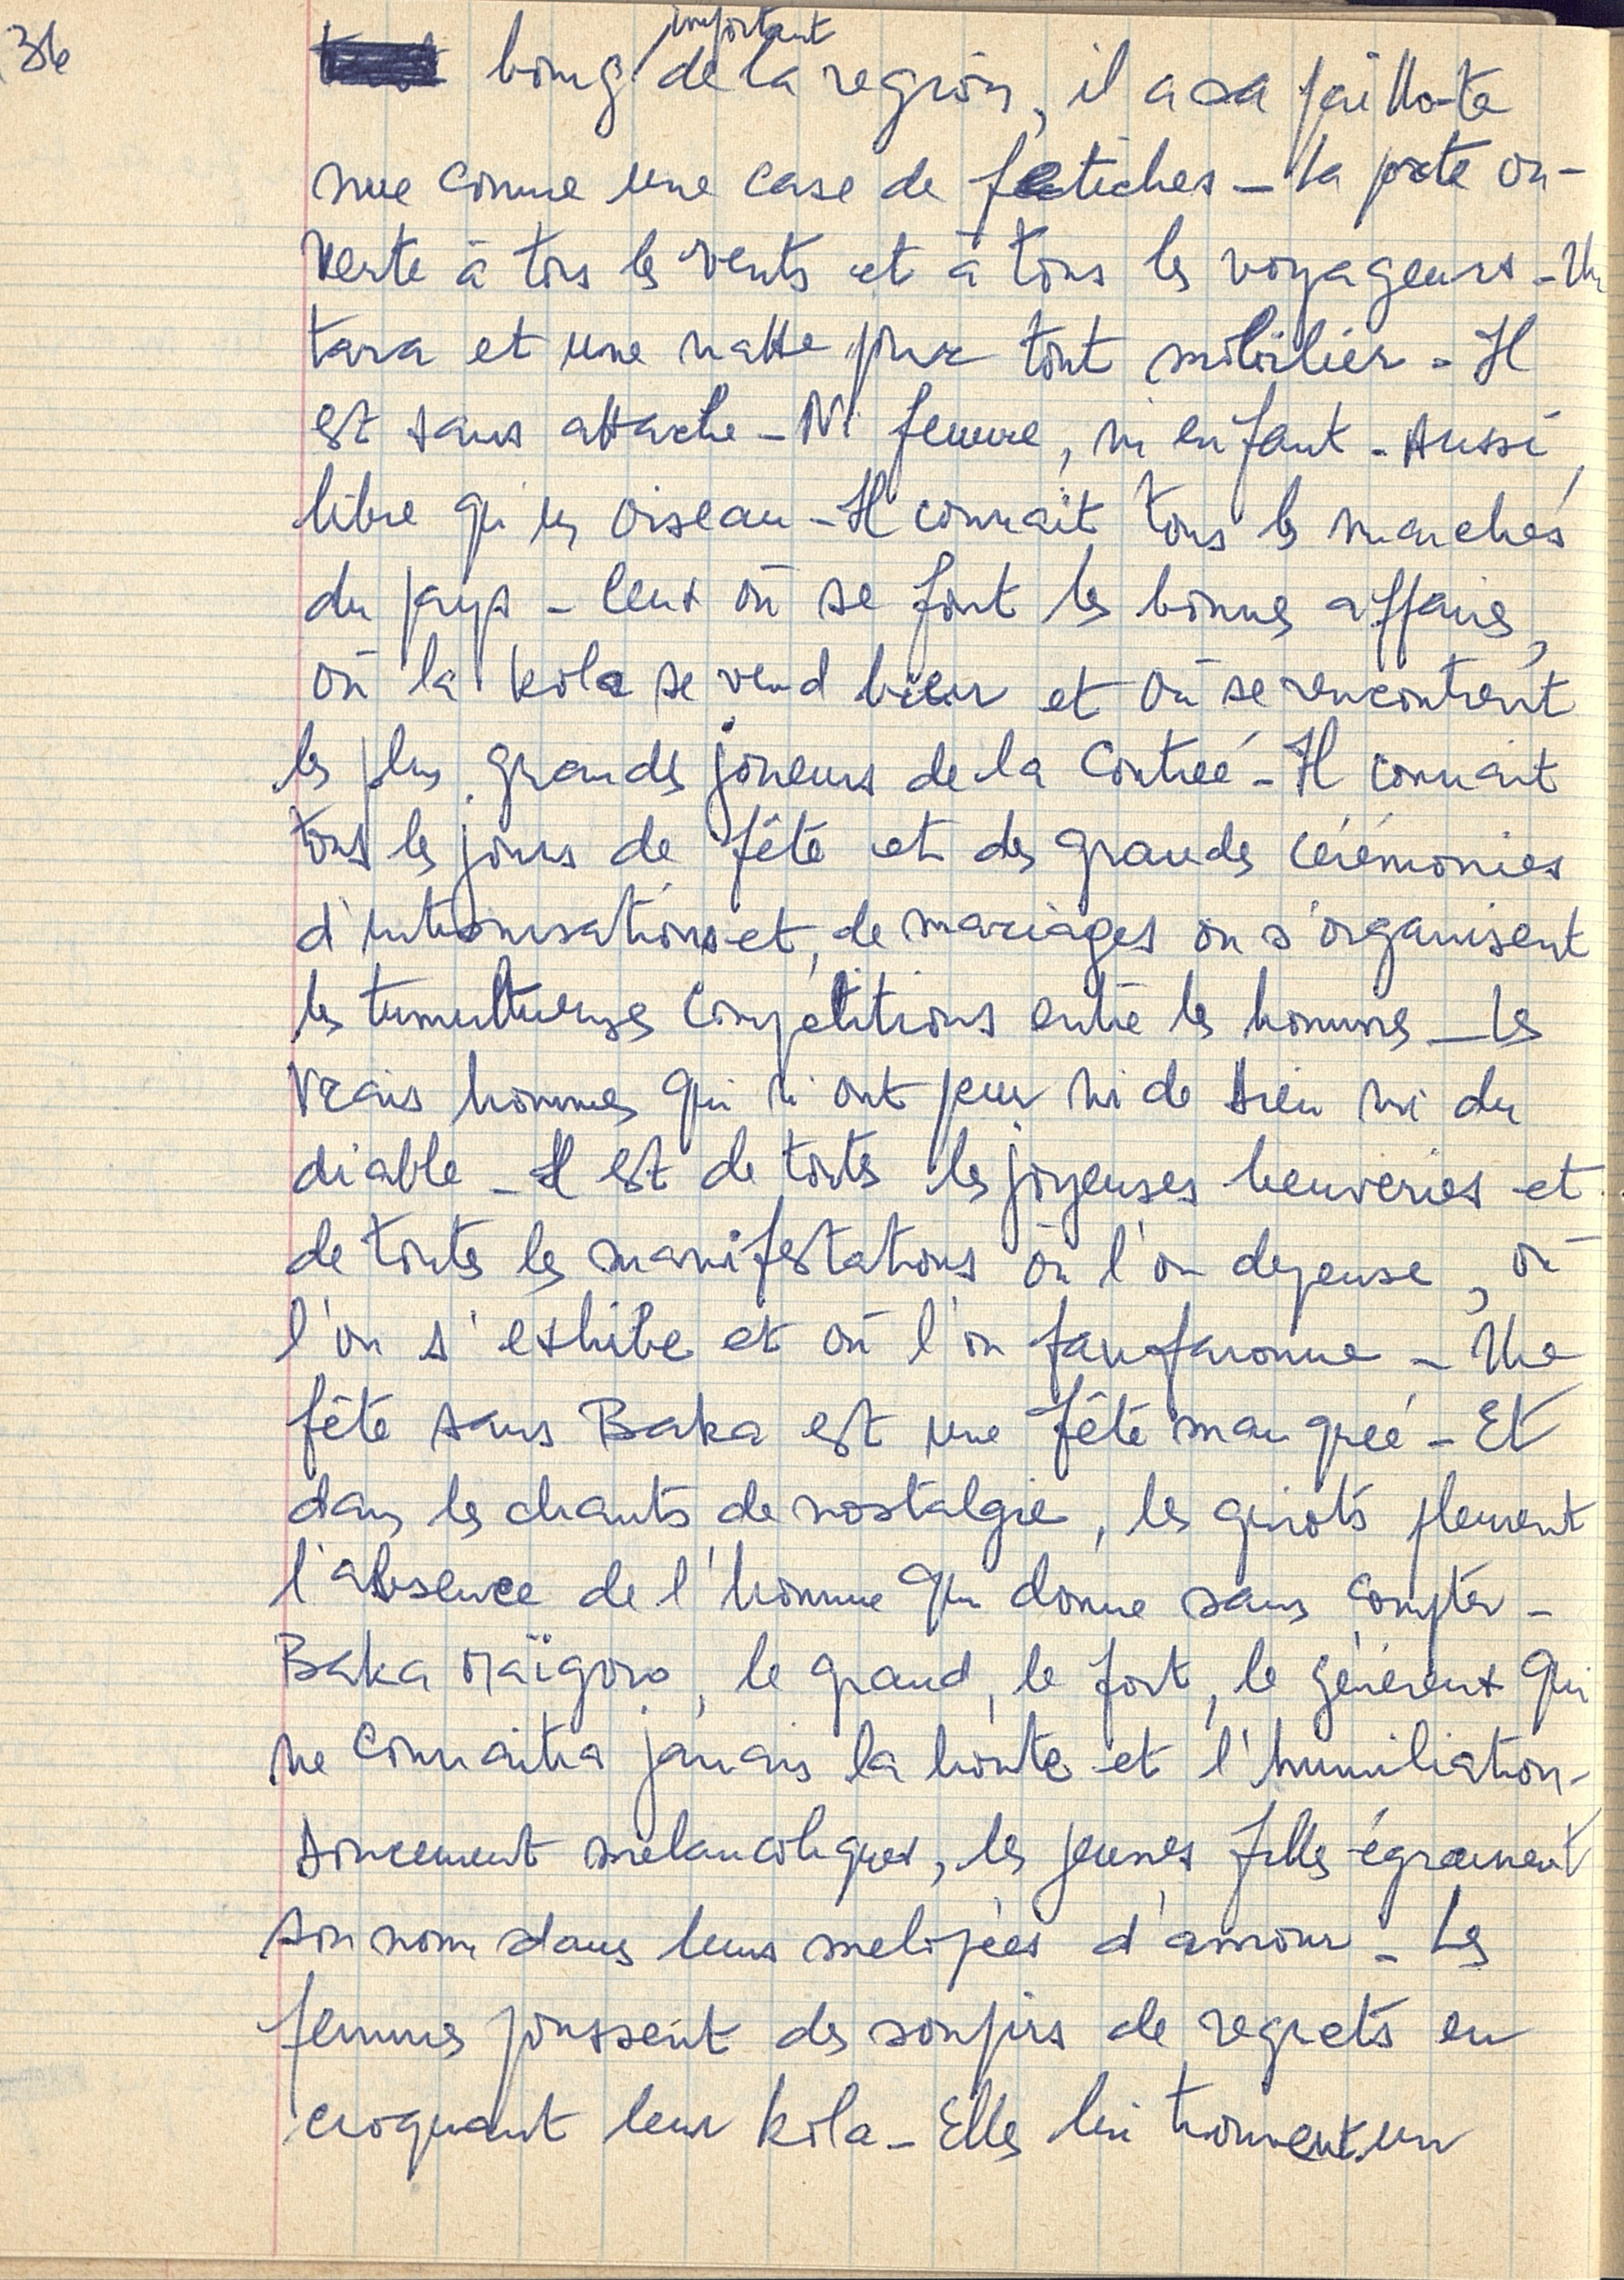 36
important
bourg de la region, il a sa paillote
nue comme une case de fetiches - la porte ou-
verte à tous les vents et à tous les voyageurs - Un
tara et une natte pour tout mobilier - Il
est sans attache - Ni femme, ni enfant - Aussi
libre qu'un oiseau - Il connait tous les marchés
du pays - Ceux où se font les bonnes affaires,
où la kola se vend bien et où se rencontrent
les plus grands joueurs de la contrée - Il connait
tous les jours de fête et des grandes cérémonies
d'intronisations et de mariages où s'organisent
les tumultueuses compétitions entre les hommes - Les
vrais hommes qui n'ont peur ni de Dieu ni du
diable - Il est de toutes les joyeuses beuveries et
de toutes les manifestations où l'on depense, où
l'on s'exhibe et où l'on fanfaronne - Une
fête sans Baka est une fête manquée - Et
dans les chants de nostalgie, les griots pleurent
l'absence de l'homme qui donne sans compter -
Baka Maïgoro, le grand, le fort, le généreux qui
ne connaitra jamais la honte et l'humiliation -
Doucement mélancoliques, les jeunes filles égrainent
son nom dans leurs melopées d'amour - Les
femmes poussent des soupirs de regrets en
croquant leur kola - Elles lui trouvent un